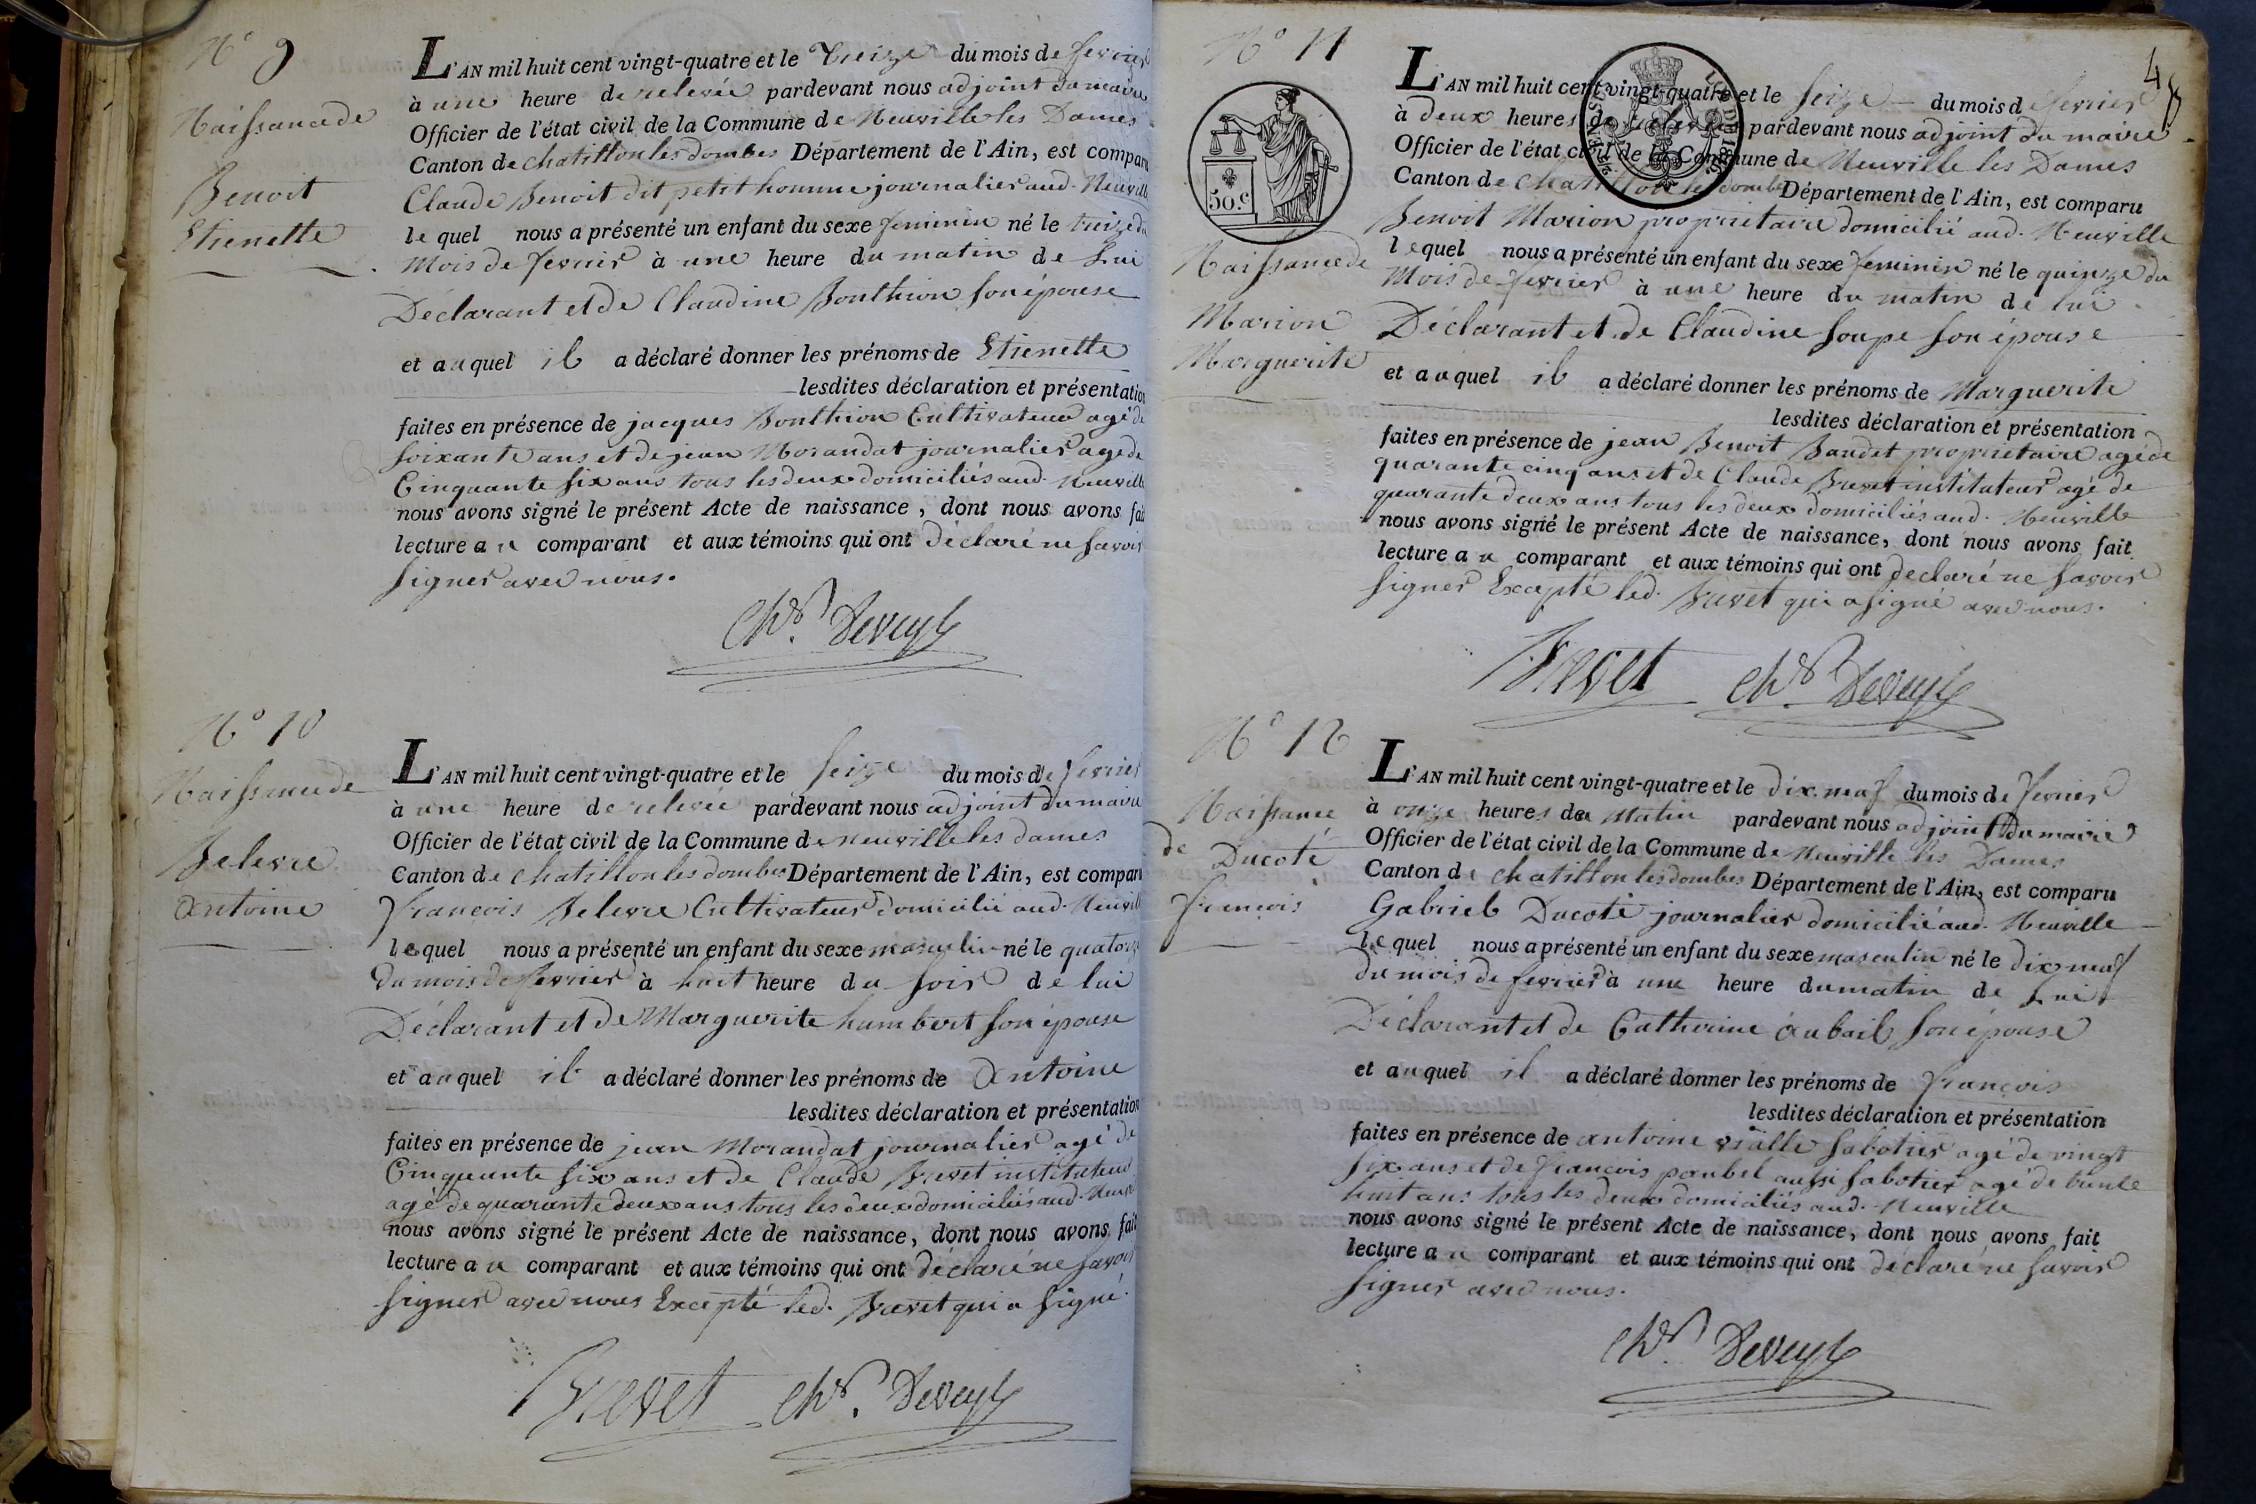 N° 9
Naissance de
Benoit
Etienette
L'AN mil huit cent vingt-quatre et le treize du mois de fevrier
à une heure de relevée pardevant nous adjoint du maire
Officier de l'état civil de la Commune de Neuville les Dames
Canton de chatillon les dombes Département de l'Ain, est comparu
Claude Benoit dit petit homme journalier aud. Neuville
le quel nous a présenté un enfant du sexe feminin né le treize du
Mois de fevrier à une heure du matin de Lui
Déclarant et de Claudine Bonthion son épouse
et auquel il a déclaré donner les prénoms de Etienette
lesdites déclaration et présentation
faites en présence de jacques Bonthion Cultivateur agé de
soixante ans et de jean Morandat journalier agé de
Cinquante six ans tous les deux domiciliés aud. Neuville
nous avons signé le présent Acte de naissance, dont nous avons fait
lecture au comparant et aux témoins qui ont déclaré ne savoir
signer avec nous.
Chs. Deveyle
N° 10
Naissance de
Belevre
antoine
L'AN mil huit cent vingt-quatre et le seize du mois de fevrier
à une heure de relevée pardevant nous adjoint du maire
Officier de l'état civil de la Commune de neuville les dames
Canton de chatillon les dombes Département de l'Ain, est comparu
françois Belevre Cultivateur domicilié aud. Neuville
lequel nous a présenté un enfant du sexe masculin né le quatorze
du mois de fevrier à huit heure du soir de lui
Déclarant et de Marguerite humbert son épouse
et auquel il a déclaré donner les prénoms de antoine
lesdites déclaration et présentation
faites en présence de jean Morandat journalier agé de
Cinquante six ans et de Claude Brevet instituteur
agé de quarante deux ans tous les deux domiciliés aud. Neuville
nous avons signé le présent Acte de naissance, dont nous avons fait
lecture au comparant et aux témoins qui ont déclaré ne savoir
signer avec nous Excepté led. Brevet qui a signé.
Brevet Chs. Deveyle
48
N° 11
50.c
Naissance de
Marion
Marguerite
L'AN mil huit cent vingt-quatre et le seize du mois de fevrier
à deux heures de relevée pardevant nous adjoint du maire
Officier de l'état civil de la Commune de Neuville les Dames
Canton de chatillon les dombes Département de l'Ain, est comparu
Benoit Marion propriétaire domicilié aud. Neuville
lequel nous a présenté un enfant du sexe feminin né le quinze du
Mois de fevrier à une heure du matin de lui
Déclarant et de Claudine Soupe son épouse
et auquel il a déclaré donner les prénoms de Marguerite
lesdites déclaration et présentation
faites en présence de jean Benoit Baudet propriétaire agé de
quarante cinq ans et de Claude Brevet instituteur agé de
quarante deux ans tous les deux domiciliés aud. Neuville
nous avons signé le présent Acte de naissance, dont nous avons fait
lecture au comparant et aux témoins qui ont declaré ne savoir
signer Excepté led. Brevet qui a signé avec nous.
Brevet Chs. Deveyle
N° 12
Naissance
de Ducoté
françois
L'AN mil huit cent vingt-quatre et le dix neuf du mois de fevrier
à onze heures du Matin pardevant nous adjoint du maire
Officier de l'état civil de la Commune de Neuville les Dames
Canton de chatillon les dombes Département de l'Ain, est comparu
Gabriel Ducoté journalier domicilié aud. Neuville
lequel nous a présenté un enfant du sexe masculin né le dix neuf
du mois de fevrier à une heure du matin de Lui
Déclarant et de Catherine aubail son épouse
et auquel il a déclaré donner les prénoms de françois
lesdites déclaration et présentation
faites en présence de antoine vialle sabotier agé de vingt
six ans et de françois paubel aussi sabotier agé de trente
huit ans tous les deux domiciliés aud. Neuville
nous avons signé le présent Acte de naissance, dont nous avons fait
lecture au comparant et aux témoins qui ont déclaré ne savoir
signer avec nous.
Chs. Deveyle